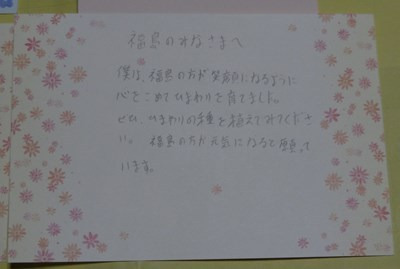 福島のみなさまへ
僕は、福島の方が笑顔になるように
心をこめてひまわりを育てました。
ぜひ、ひまわりの種を植えてみてくださ
い。 福島の方が元気になると願って
います。